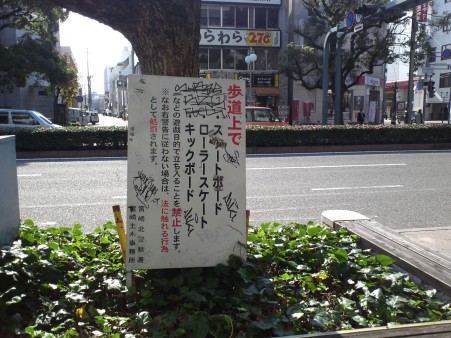 歩道上で
スケートボード
ローラースケート
キックボード
などの遊戯目的で立ち入ることを禁止します。
※なお右警告に従わない場合は、法に触れる行為
として処罰されます。
宮崎北警察署
宮崎土木事務所
らわら
270